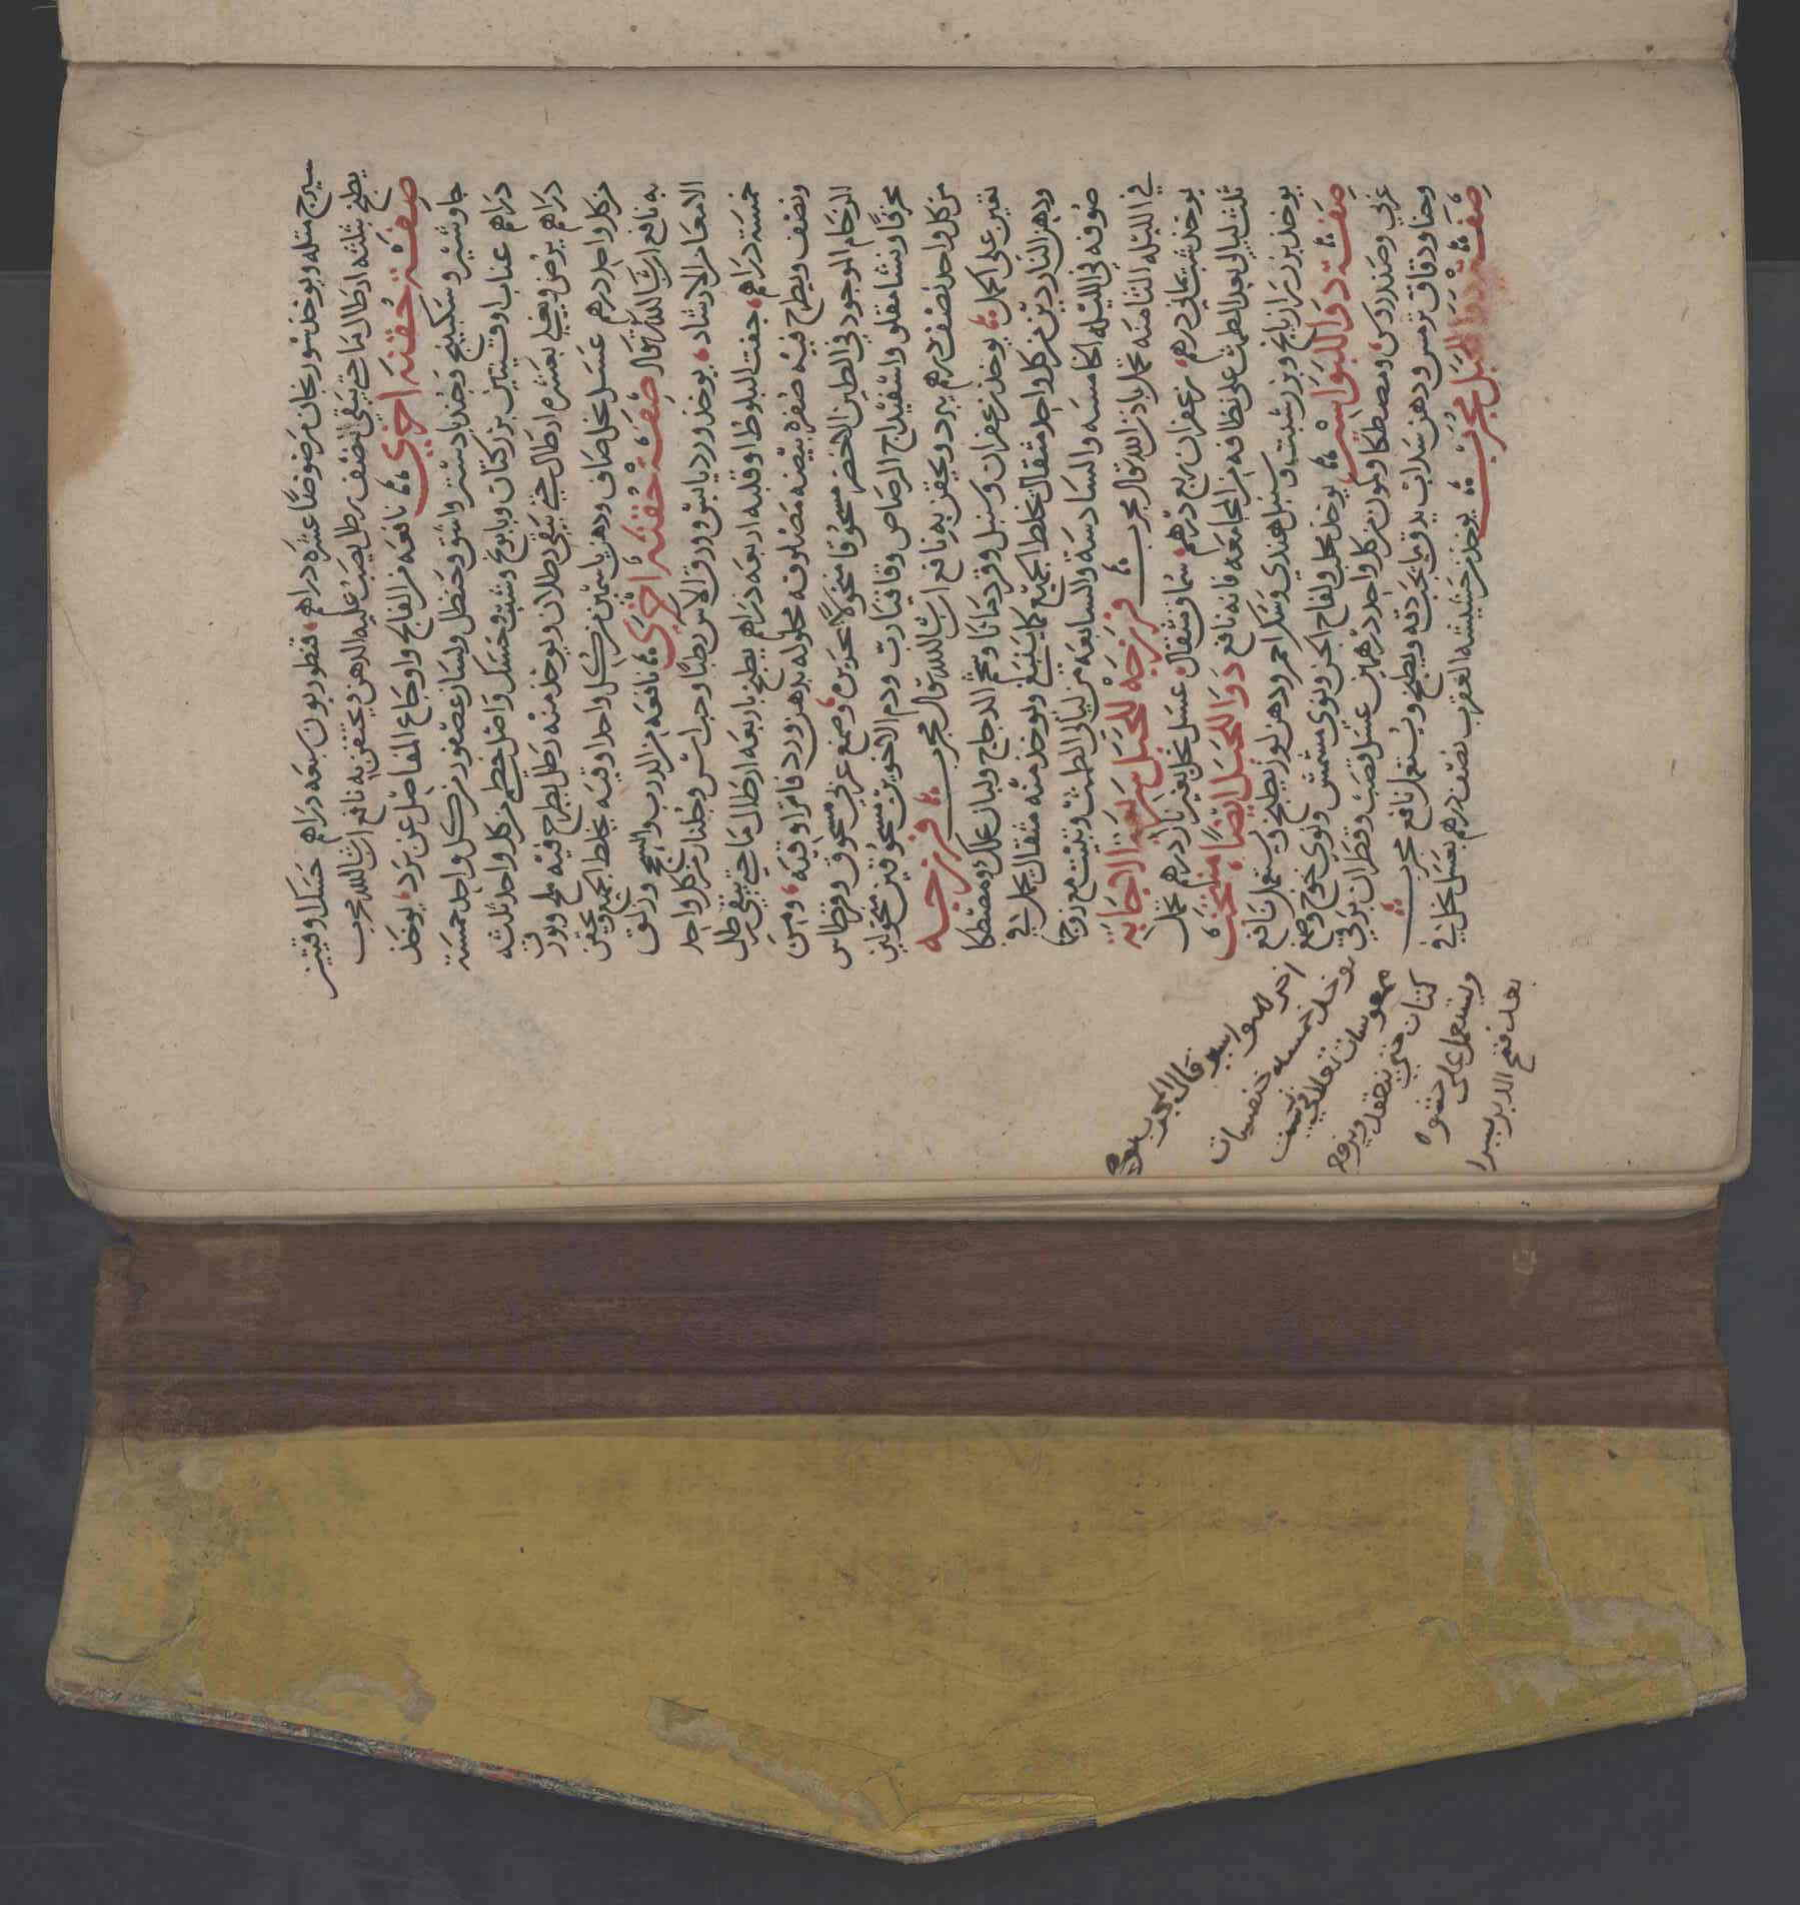 سيرج مثله ويوخذ سورنجان مرضوضًا عشره دراهم قنطوريون سبعه دراهم حسك اوقيتين
يطبخ بثلثه ارطال ما حتى يبقى النصف رطل يصب عليه الدهن ويحتقن به نافع ان شا الله مجرب
صفة حقنه اخرى نافعه من الفالج واوجاع المفاصل عن برد يوخذ
جاوشير وسكبينج وجندبادستر واشق وحنظل ولسان عصفور من كل واحد خمسة
دراهم عناب اوقيتين بزر كتان وبابونج وشبت وحسك واصل خطمى من كل واحد ثلثه
دراهم يرض ويغلى بعشره ارطال حتى يبقى رطلان ويوخذ منه رطل يطرح فيه ملح وبورق
من كل واحد درهم عسل نحل صاف ودهن ياسمين من كل واحد اوقيه يخلط الجميع ويحقن
به نافع ان شا الله تعالى صفة حقنه اخرى نافعه من الدرب والسحج وزلق
الامعا من الارشاد يوخذ ورد يابس وورق الاس رطبًا وحب اس وجلنار من كل واحد
خمسة دراهم جفت البلوط اوقله اربعه دراهم يطبخ باربعه ارطال ما حتى يبقى رطل
ونصف ويطرح فيه صفره بيضه مصلوقه محلوله بدهن ورد فاترا اوقيه ومن
الرخام الموجود في الطين الاخضر مسحوقا منخولا بحريره وصمغ عربي مسحوق وقرطاس
محرقًا ونشا مقلو واسفيداج الرصاص وقاقيا رب ودم الاخوين مسحوقين منخولين
من كل واحد نصف درهم يبرد ويحقن به نافع ان شا الله تعالى مجرب فرزجه
تعين على الحمل يوخذ زعفران وسنبل وقردمانا وشحم الدجاج ولبان علك ومصطكا
ودهن الناردين من كل واحد مثقال يخلط الجميع كما ينبغى ويوخذ منه مثقال يحمل في
صوفه في الليله الخامسه والسادسة والسابعه من ليالى الطمث وتبيت مع زوجها
في الليله الثامنه تحمل باذن الله تعالى مجرب فرزجه للحبل سريعة الاجابه
يوخذ شب يماني درهم زعفران ربع درهم سماق مثقال عسل نحل بغير نار درهم تحمل
ثلث ليالى بعد الطمث على نظافه من المجامعه فانه نافع دوا للحبل ايضا منتخب
يوخذ بزر رازيانج وبزر شبت وسنبل هندى وسكر احمر ودهن لوز يطبخ ويستعمل نافع
صفة دوا للبواسير يوخذ محلب ولفاح الجن ونوى مشمش ونوى خوخ وصمغ
عربي وصندروس ومصطكا وكمون من كل واحد درهمين عسل قصب وقطران برقى
وحنا ودقاق ترمس ودهن سداب يدق ما يجب دقه ويطبخ ويستعمل نافع مجرب
صفة دوا للحبل مجرب يوخذ من حشيشه العقرب نصف درهم بعسل نحل في
اخر للبواسير قال المجرب
يوخذ خمسه خنفسات
كتان حتى
ويستعمل على
بعد فتح الدبر يبرا